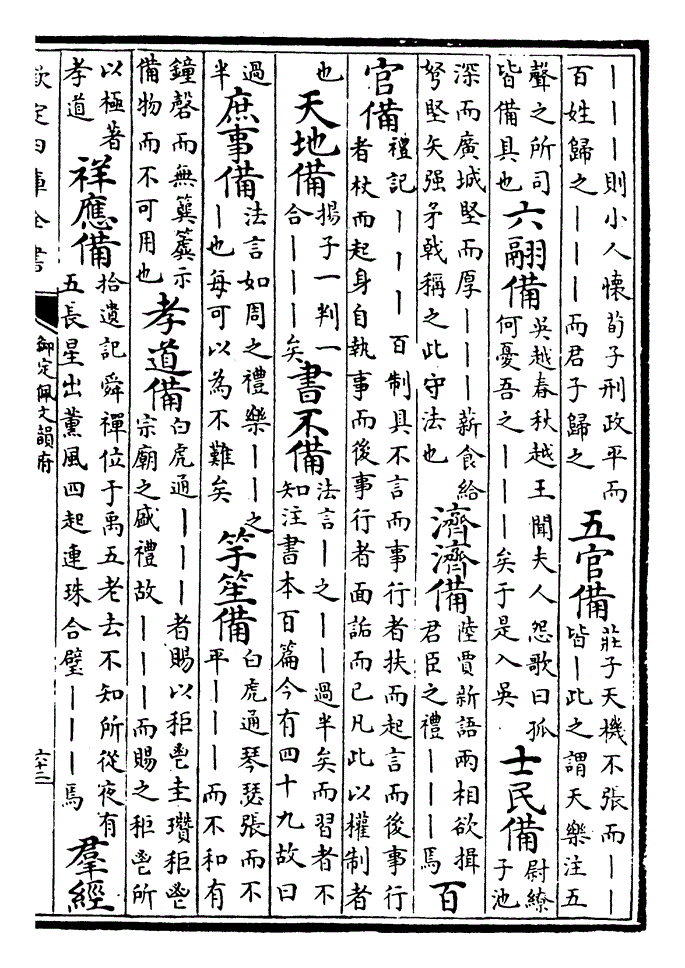 丨丨丨則小人懷荀子刑政平而
百姓歸之丨丨丨而君子歸之
五官備
莊子天機不張而丨丨
皆丨此之謂天樂注五
聲之所司
皆備具也
六翮備
吳越春秋越王聞夫人怨歌曰孤
何憂吾之丨丨丨矣于是入吳
士民備
尉繚
子池
深而廣城堅而厚丨丨丨薪食給
弩堅矢强矛戟稱之此守法也
濟濟備
陸賈新語兩相欲揖
君臣之禮丨丨丨焉
百
官備
禮記丨丨丨百制具不言而事行者扶而起言而後事行
者杖而起身自執事而後事行者面詬而已凡此以權制者
也
天地備
揚子一判一
合丨丨丨矣
書不備
法言丨之丨丨過半矣而習者不
知注書本百篇今有四十九故曰
過
半
庶事備
法言如周之禮樂丨丨之
丨也每可以為不難矣
竽笙備
白虎通琴瑟張而不
平丨丨丨而不和有
鐘磬而無簨簴示
備物而不可用也
孝道備
白虎通丨丨丨者賜以秬鬯圭瓚秬鬯
宗廟之盛禮故丨丨丨而賜之秬鬯所
以極著
孝道
祥應備
拾遺記舜禪位于禹五老去不知所從夜有
五長星出薰風四起連珠合璧丨丨丨焉
羣經
欽定四庫全書
御定佩文韻府
六十二